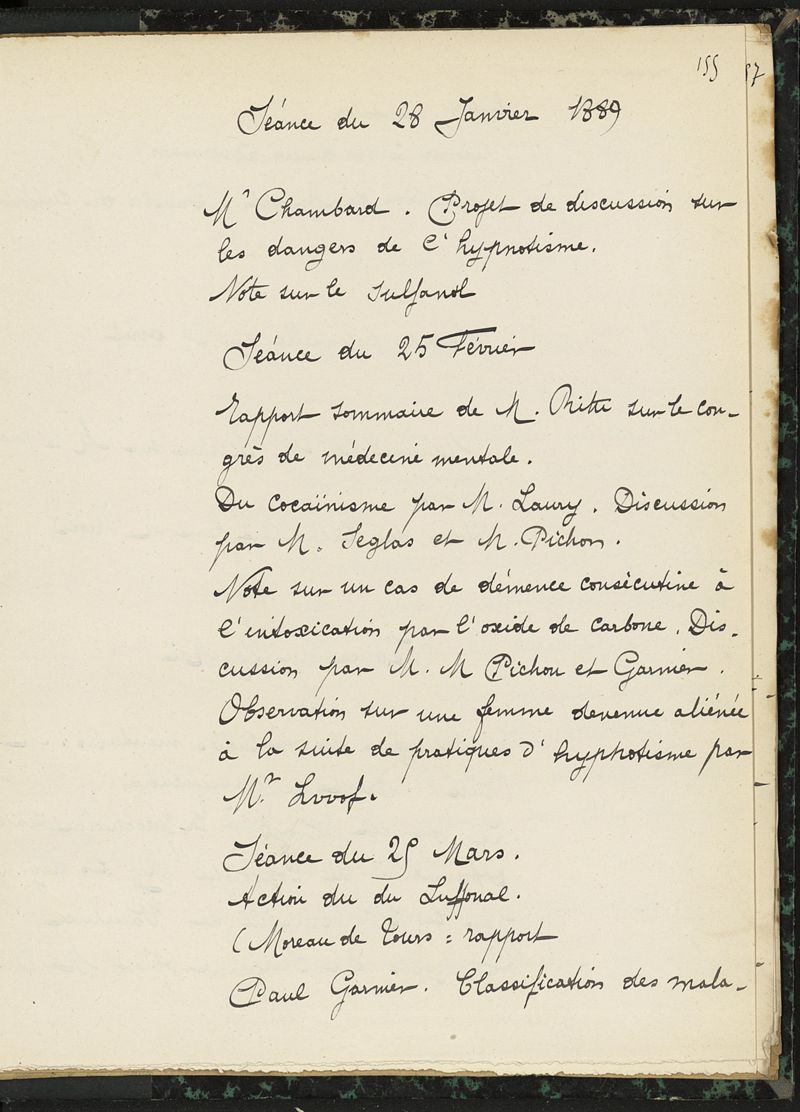 155
57
Séance du 28 Janvier 1889
Mr Chambard. Projet de discussion sur
les dangers de l'hypnotisme.
Note sur le sulfanol
Séance du 25 Février
Rapport sommaire de M. Ritti sur le con-
grès de médecine mentale.
Du cocaïnisme par M. Laury. Discussion
par M. Seglas et M. Pichon.
Note sur un cas de démence consécutive à
l'intoxication par l'oxide de carbone. Dis-
cussion par M. M Pichon et Garnier.
Observation sur une femme devenue aliénée
à la suite de pratiques d'hyphotisme par
Mr. Lvvof.
Séance du 25 Mars.
Action du du Luffonal.
(Moreau de Tours = rapport
Paul Garnier. Classification des mala-